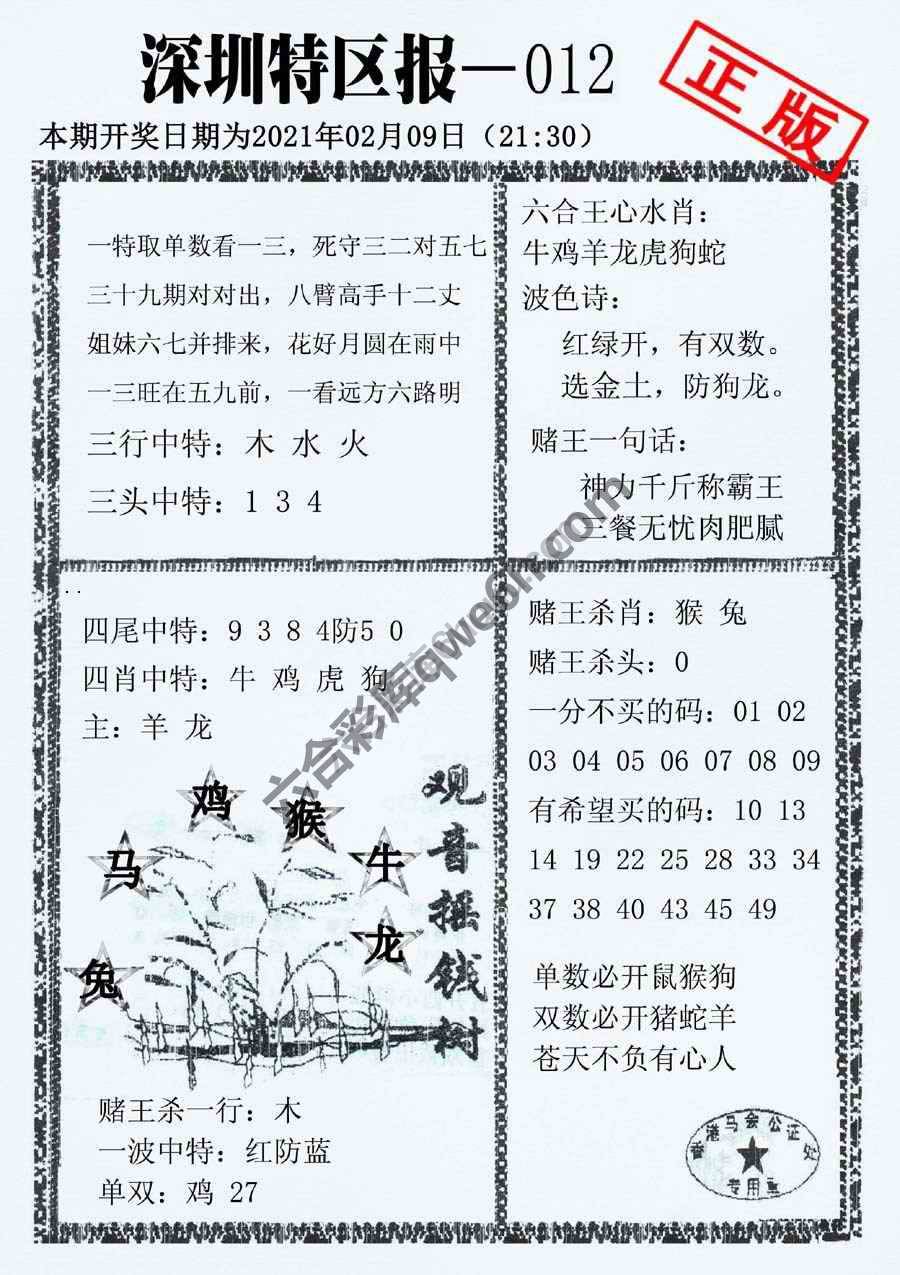 深圳特区报—012
正版
本期开奖日期为2021年02月09日（21:30）
一特取单数看一三，死守三二对五七
三十九期对对出，八臂高手十二丈
姐妹六七并排来，花好月圆在雨中
一三旺在五九前，一看远方六路明
三行中特：木 水 火
三头中特：1 3 4
六合王心水肖：
牛鸡羊龙虎狗蛇
波色诗：
红绿开，有双数。
选金土，防狗龙。
赌王一句话：
神力千斤称霸王
三餐无忧肉肥腻
四尾中特：9 3 8 4防5 0
四肖中特：牛 鸡 虎 狗
主：羊 龙
鸡
猴
马
牛
龙
兔
观音摇钱树
赌王杀一行：木
一波中特：红防蓝
单双：鸡 27
赌王杀肖：猴 兔
赌王杀头：0
一分不买的码：01 02
03 04 05 06 07 08 09
有希望买的码：10 13
14 19 22 25 28 33 34
37 38 40 43 45 49
单数必开鼠猴狗
双数必开猪蛇羊
苍天不负有心人
香港马会公证处
专用章
六合彩库qwe6h.com